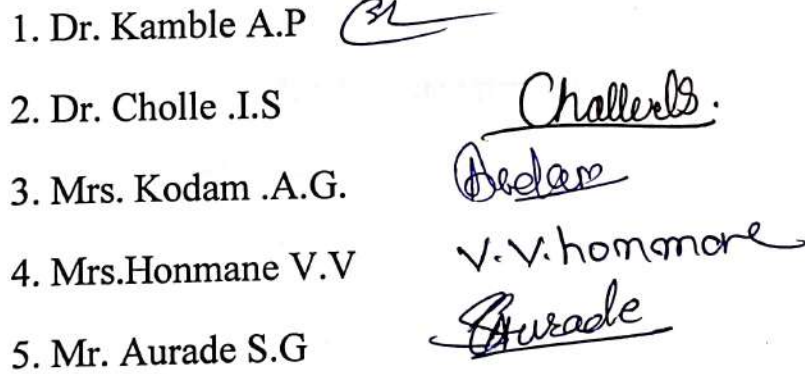 1. Dr. Kamble A.P
2. Dr. Cholle .I.S
3. Mrs. Kodam .A.G.
4. Mrs.Honmane V.V V.V.honmane
5. Mr. Aurade S.G Aurade